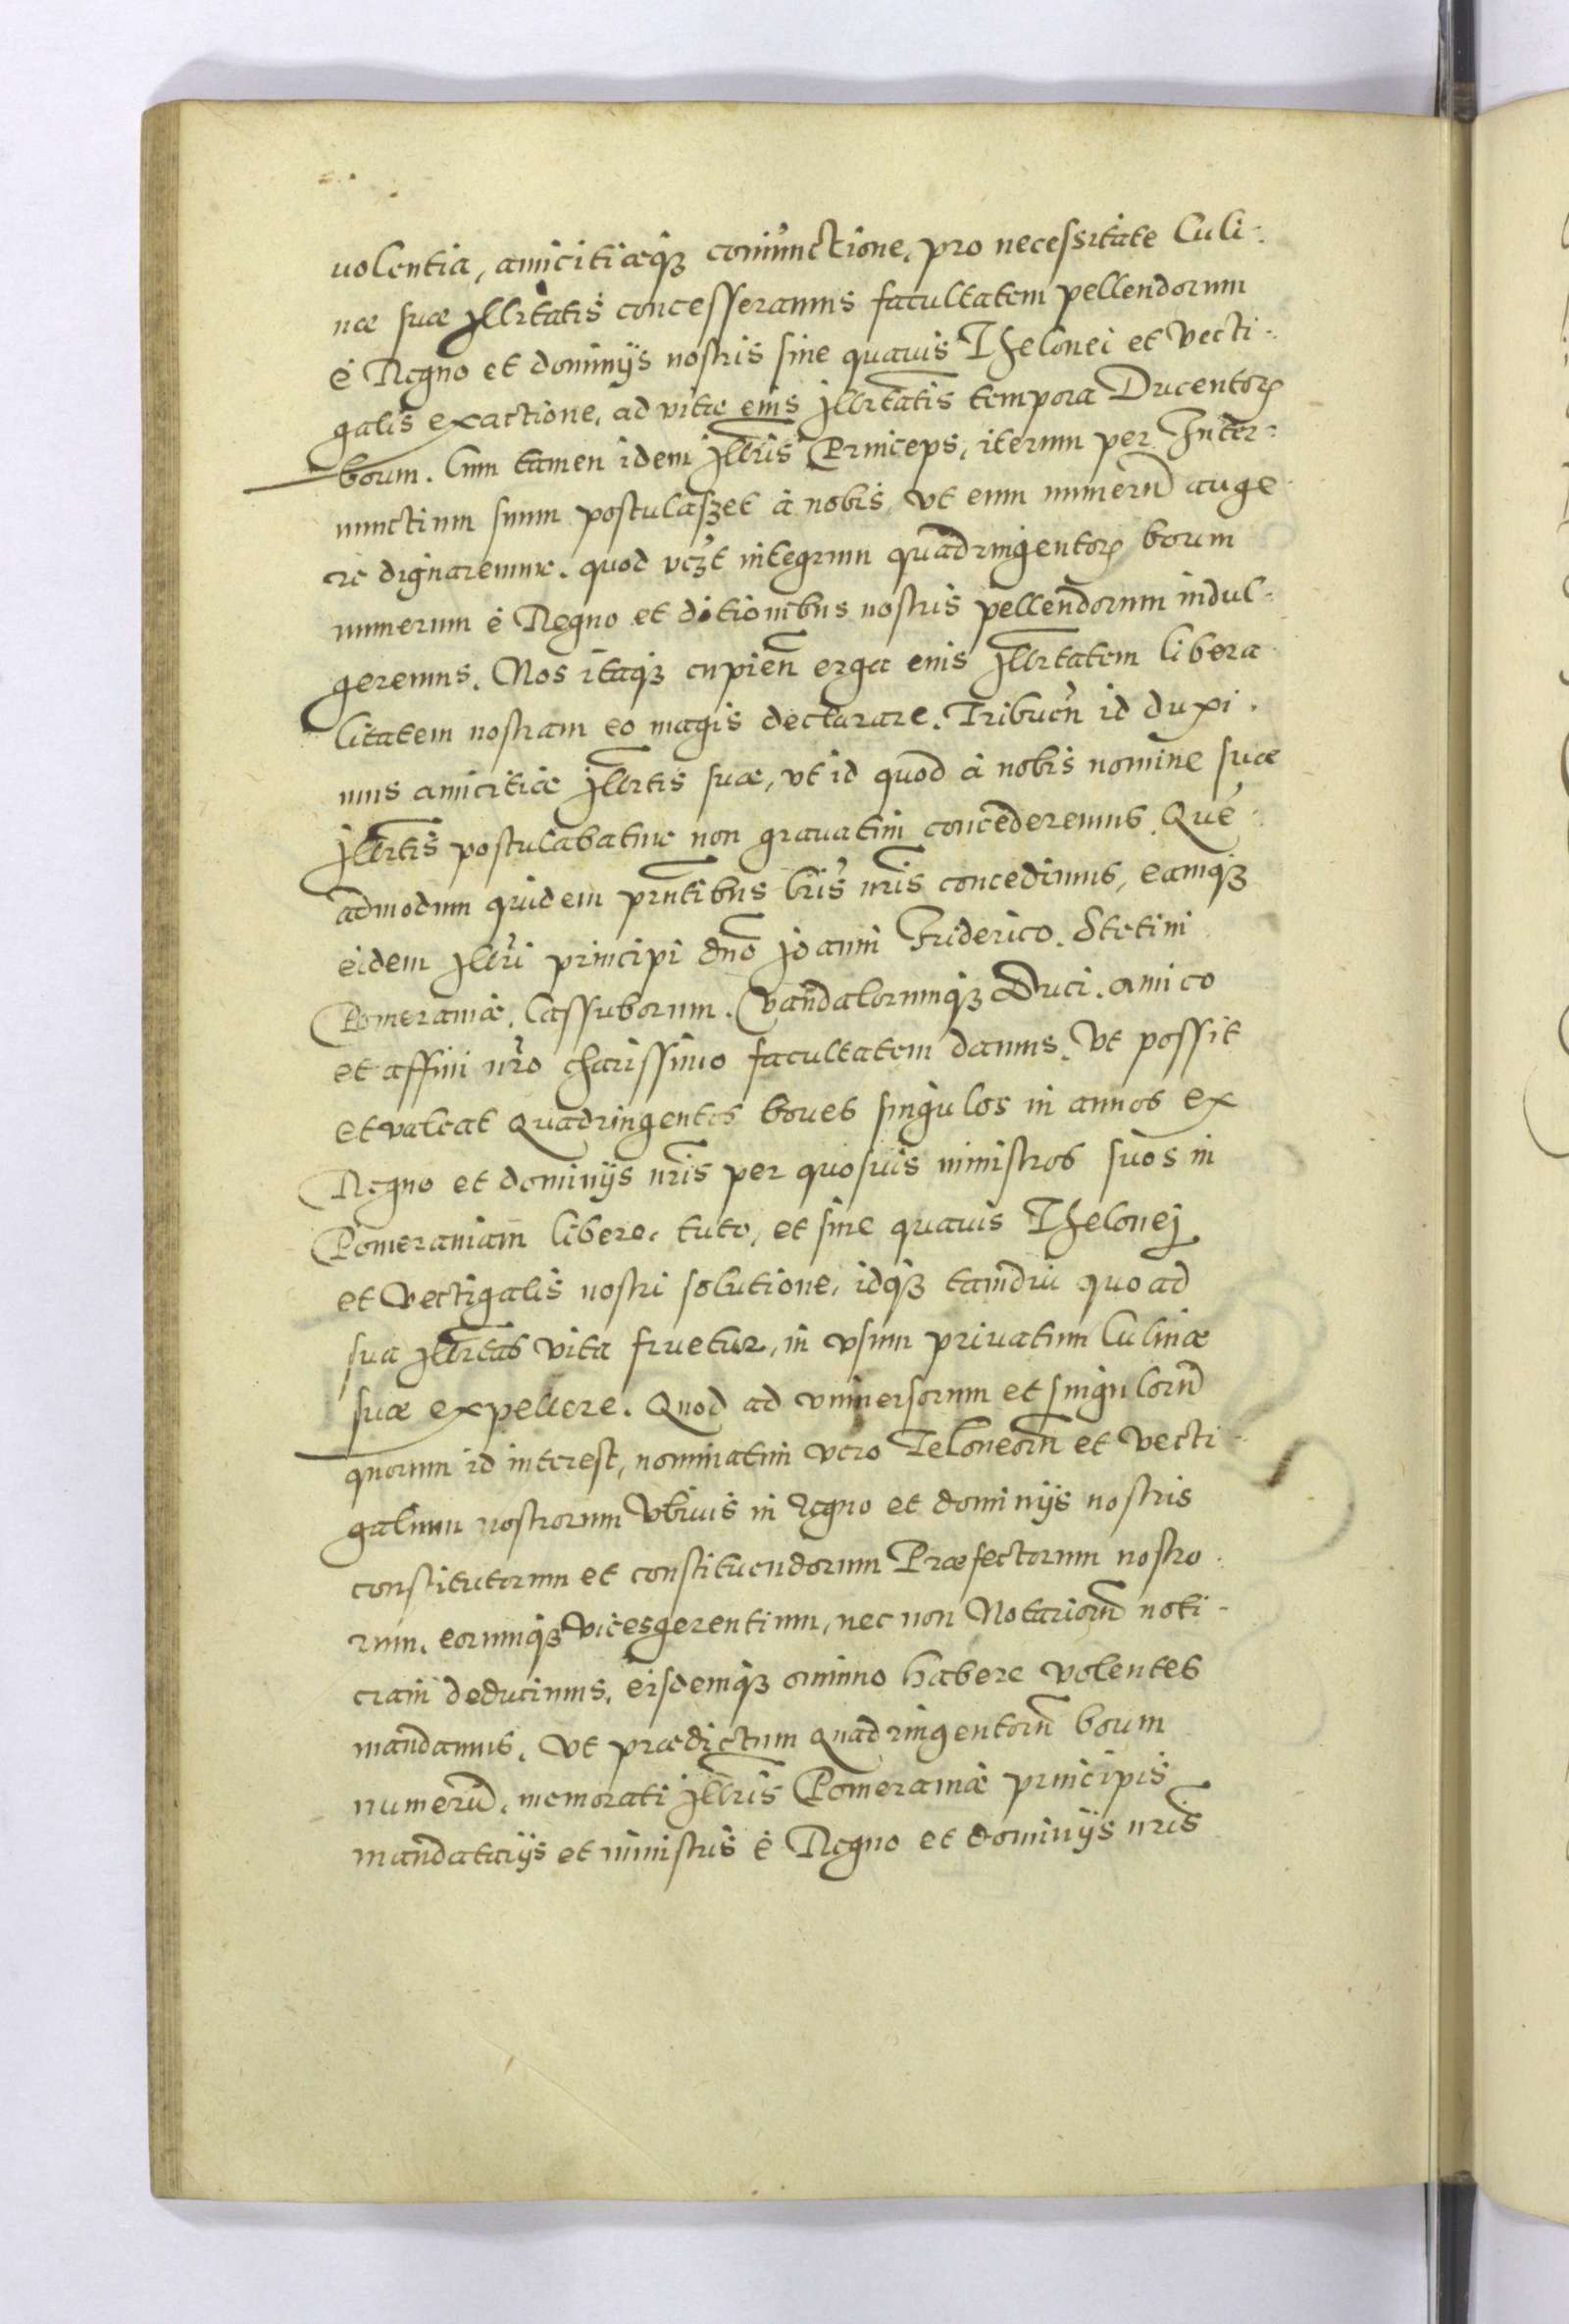 uolentia, amicitiæqꝫ coniunctione, pro necessitate Culi-
næ suæ Illrtatis concesseramus facultatem pellendorum
è Regno et dominijs nostris sine quauis Thelonei et vecti-
galis exactione, ad vitæ eius Illrtatis tempora Ducentorꝫ
boum. Cum tamen idem Illris Princeps, iterum per Inter-
nunctium suum postulasset à nobis vt eum numerũ auge
re dignaremur. quod vꝫt integrum quadringentorꝫ boum
numerum è Regno et ditionibus nostris pellendorum indul-
geremus. Nos itaqꝫ cupieñ erga eius Illrtatem libera
litatem nostram eo magis declarare. Tribueñ id duxi.
mus amicitiæ Illrtis suæ, vt id quod à nobis nomine suæ
Illrtis postulabatur non grauatim concederemus. Quẽ
admodum quidem prñtibus lris nris concedimus, eamqꝫ
eidem Illri principi dno Joanni Friderico. Stetini
Pomeraniæ, Cassuborum. Vandalorumqꝫ Duci. amico
et affini nro charissimo facultatem damus. Vt possit
et valeat Quadringentos boues singulos in annos ex
Regno et dominijs nris per quosuis ministros suos in
Pomeraniam libere, tuto, et sine quauis Thelonej
et vectigalis nostri solutione, idqꝫ tamdiu quoad
sua Illrtas vita fruetur, in vsum priuatum Culinæ
suæ expellere. Quod ad vniuersorum et singulorũ
quorum id interest, nominatim vero Teloneorũ et vecti-
galium nostrorum vbiuis in Regno et dominijs nostris
constitutorum et constituendorum Præfectorum nostro-
rum, eorumqꝫ vicesgerentium, nec non Notariorũ noti-
ciam deducimus, eisdemqꝫ omnino habere volentes
mandamus, vt prædictum quadringentorũ boum
numerũ, memorati Illris Pomeraniæ principis
mandatarijs et ministris è Regno et dominijs nris